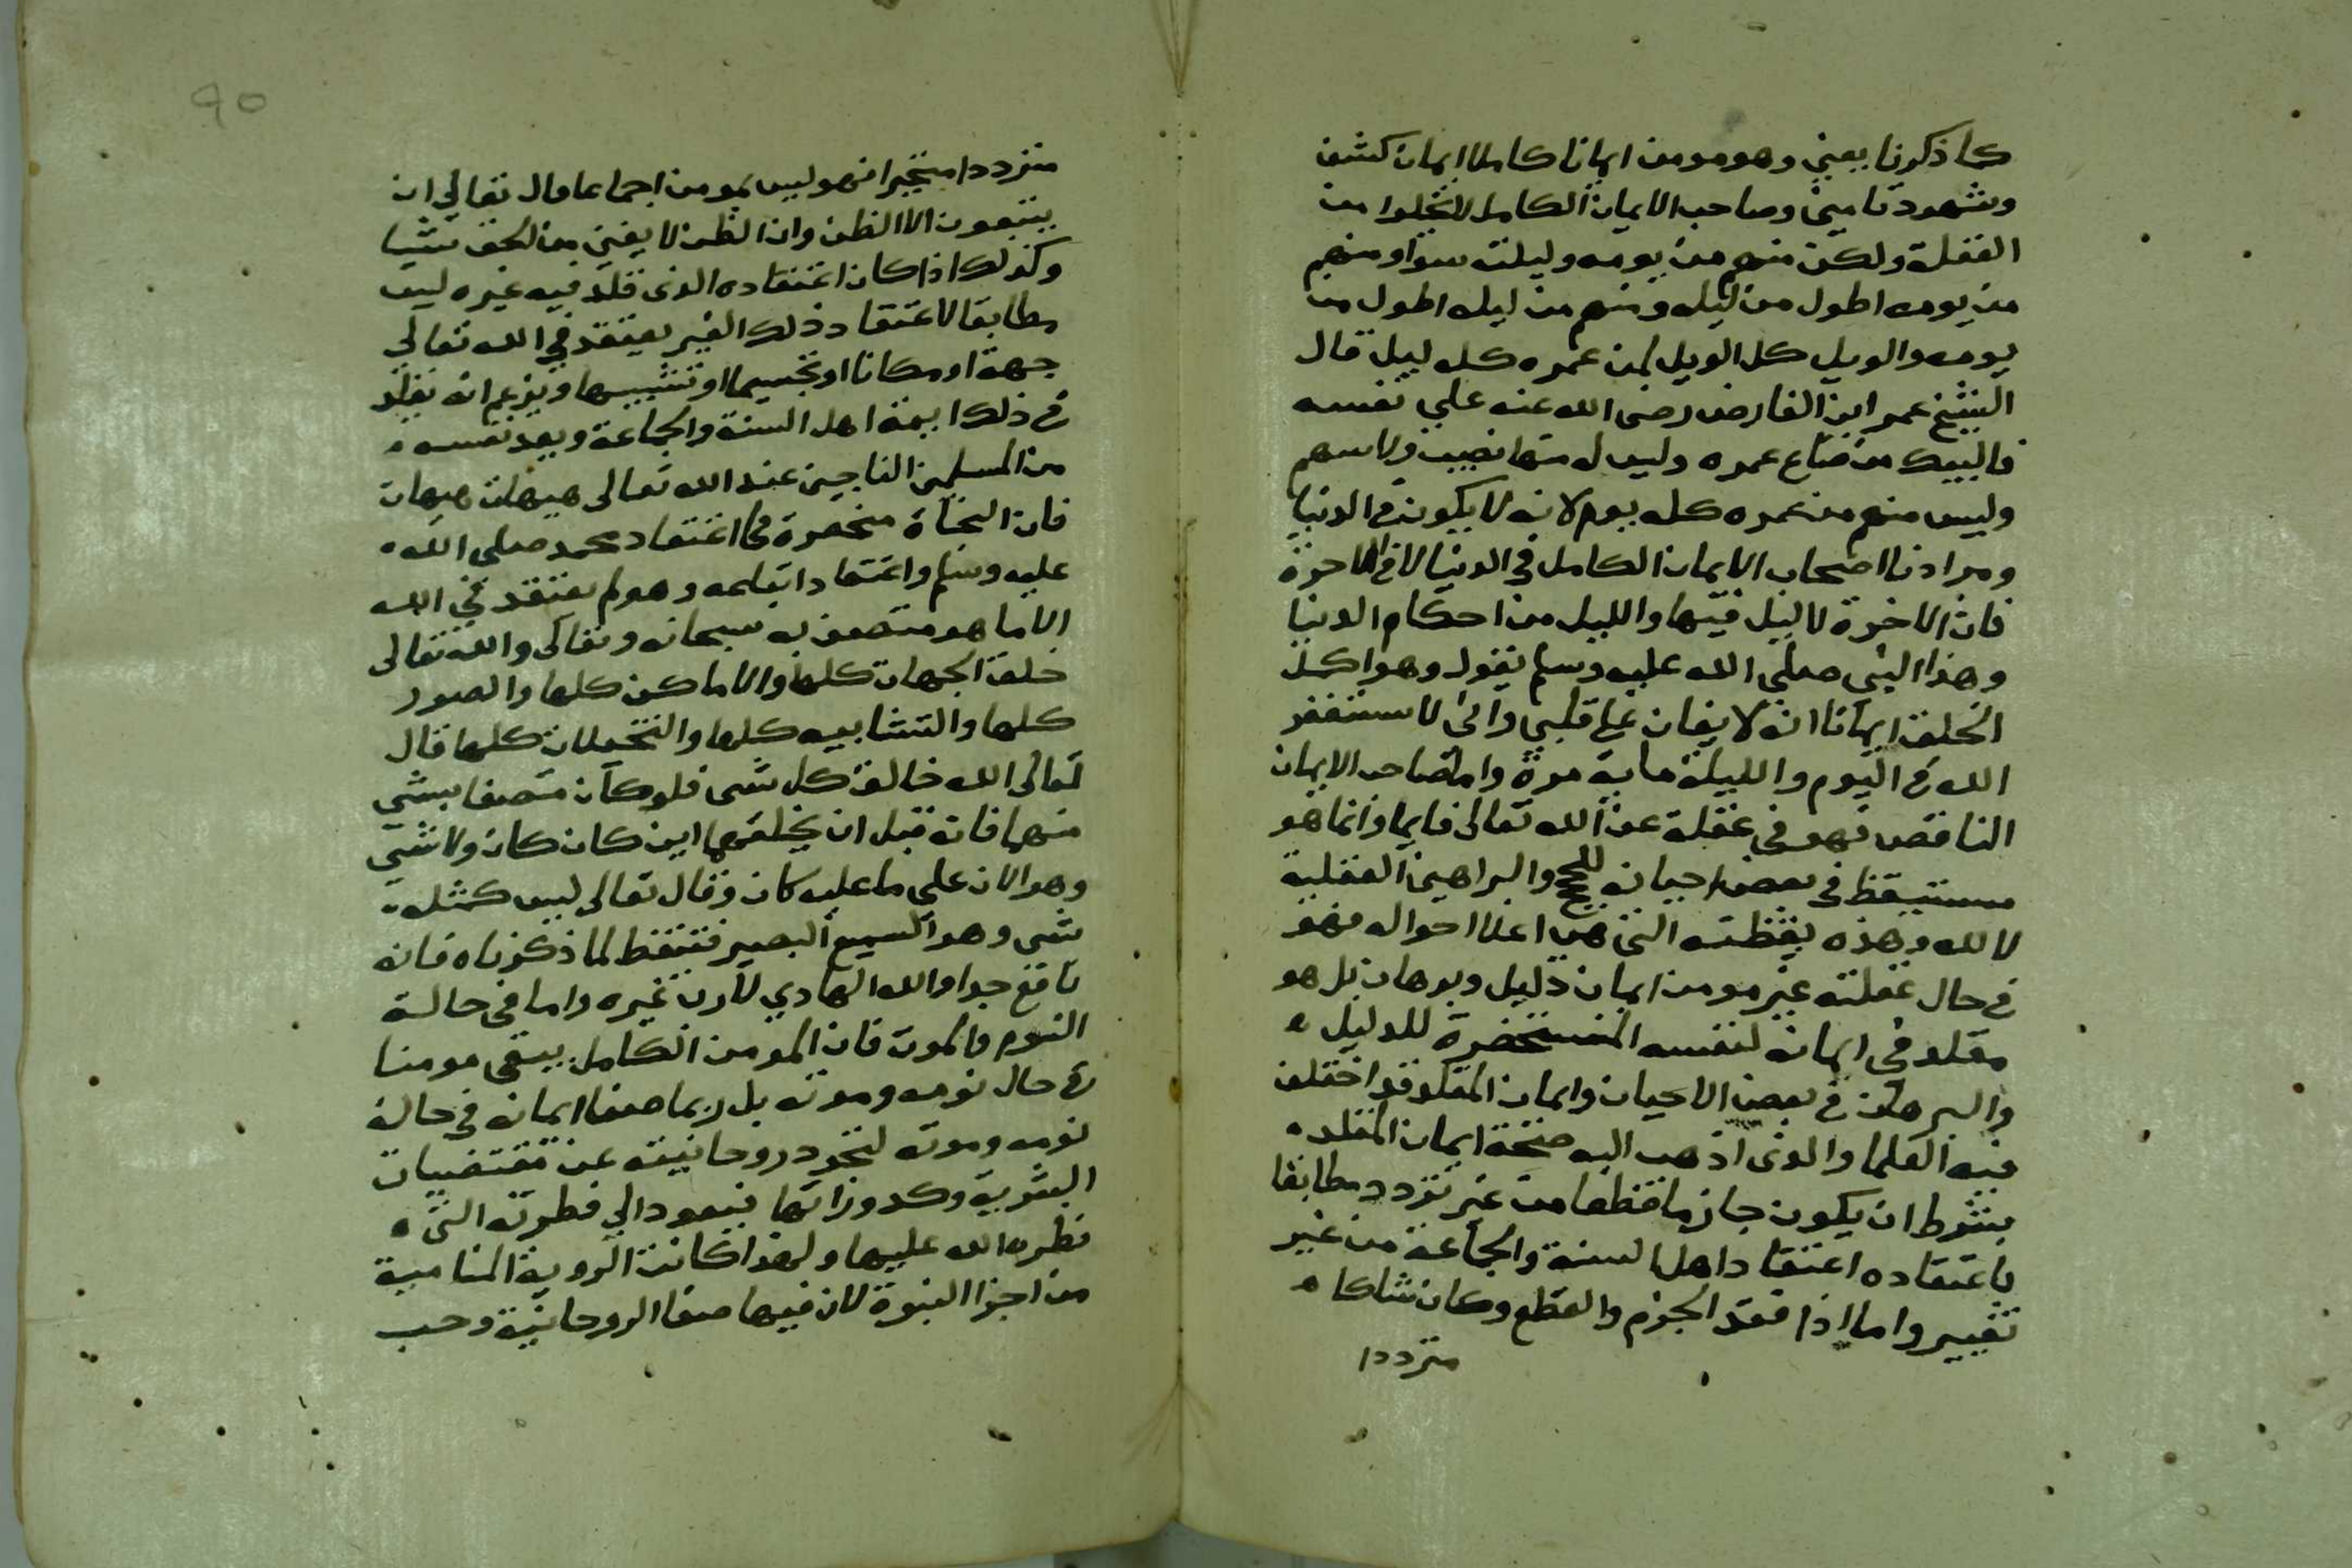 كما ذكرنا يعني وهو مومن ايمانا كاملا ايمان كشف
وشهود تامين وصاحب الايمان الكامل لا يخلوا من
الغفلة ولكن منهم من يومه وليلته سوا ومنهم
من يومه اطول من ليله ومنهم من ليله اطول من
يومه والويل كل الويل لمن عمره كله ليل قال
الشيخ عمر ابن الفارض رضى الله عنه علي نفسه
فاليبك من ضاع عمره وليس له منها نصيب ولا سهم
وليس منهم من عمره كله يوم لانه لا يكون في الدنيا
ومرادنا اصحاب الايمان الكامل في الدنيا لا في الاخرة
فان الاخرة لا ليل فيها والليل من احكام الدنيا
وهذا النبى صلى الله عليه وسلم يقول وهو اكمل
الخلق ايمانا انه لا يغان على قلبي وانى لاستغفر
الله في اليوم والليلة ماية مرة واما صاحب الايمان
الناقص فهو في غفلة عن الله تعالى دايما وانما هو
مستيقظ في بعض احيانه للحجج والبراهين العقلية
لا لله وهذه يقظته التي هي اعلا احواله فهو
في حال غفلته غير مومن ايمان دليل وبرهان بل هو
مقلد في ايمانه لنفسه المستحضرة للدليل
والبرهان في بعض الاحيان وايمان المقلد قد اختلف
فيه العلما والذى اذهب اليه صحة ايمان المقلد
بشرط ان يكون جازما قطعا من غير تردد مطابقا
باعتقاده اعتقاد اهل السنة والجماعة من غير
تغيير واما اذا فقد الجزم والقطع وكان شاكا
مترددا
٩٥
مترددا متحيرا فهو ليس بمومن اجماعا قال تعالي ان
يتبعون الا الظن وان الظن لا يغني من الحق شيا
وكذلك اذا كان اعتقاده الذى قلد فيه غيره ليس
مطابقا لاعتقاد ذلك الغير يعتقد في الله تعالي
جهة او مكانا او تجسيما او تشبيها ويزعم انه يقلد
في ذلك ايمة اهل السنة والجماعة ويعد نفسه
من المسلمين الناجين عند الله تعالى هيهات هيهات
فان النجاة منحصرة في اعتقاد محمد صلى الله
عليه وسلم واعتقاد اتباعه وهو لم يعتقد في الله
الا ما هو متصف به سبحانه وتعالى والله تعالى
خلق الجهات كلها والاماكن كلها والصور
كلها والتشابيه كلها والتخيلات كلها قال
تعالى الله خالق كل شى فلو كان متصفا بشي
منها فانه قبل ان يخلقها اين كان كان ولا شي
وهو الان على ما عليه كان وقال تعالى ليس كمثله
شى وهو السميع البصير فتيقظ لما ذكرناه فانه
نافع جدا والله الهادي لا رب غيره واما في حالة
النوم والموت فان المومن الكامل يبقى مومنا
في حال نومه وموته بل ربما صفا ايمانه في حالة
نومه وموته لتجرد روحانيته عن مقتضيات
البشرية وكدوراتها فيعود الي فطرته التى
فطره الله عليها ولهذا كانت الروية المنامية
من اجزا النبوة لان فيها صفا الروحانية وحسب